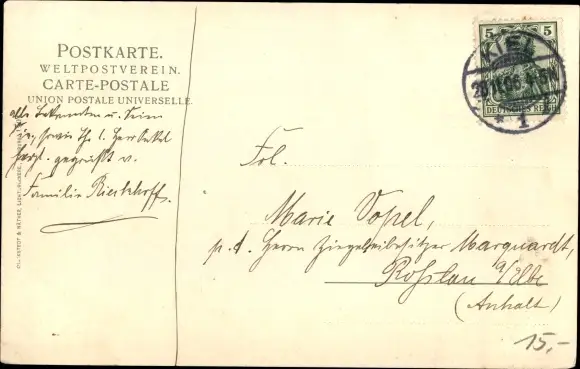 POSTKARTE.
WELTPOSTVEREIN.
CARTE-POSTALE
UNION POSTALE UNIVERSELLE.
alle Bekannten u. Seien
Sie, sowie Ihr l. Herr Onkel
herzl. gegrüßt v.
Familie
5 5
DEUTSCHES REICH
KIEL
* 1
Frl.
Marie Vopel,
p. A. Herrn Ziegeleibesitzer Marquardt,
Roßlau a/Elbe
(Anhalt)
15,-